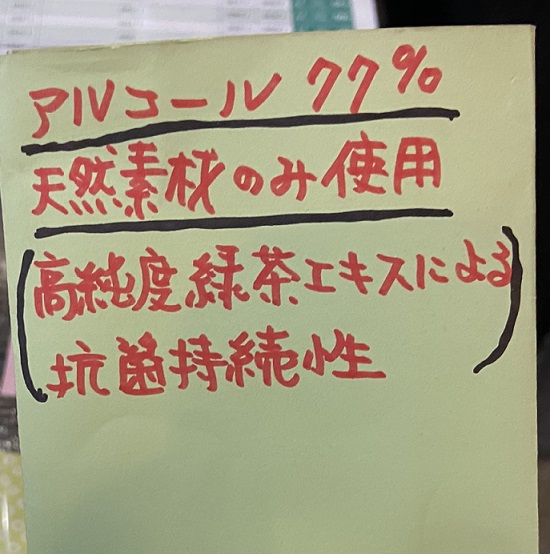 アルコール 77%
天然素材のみ使用
(高純度緑茶エキスによる
坑菌持続性)